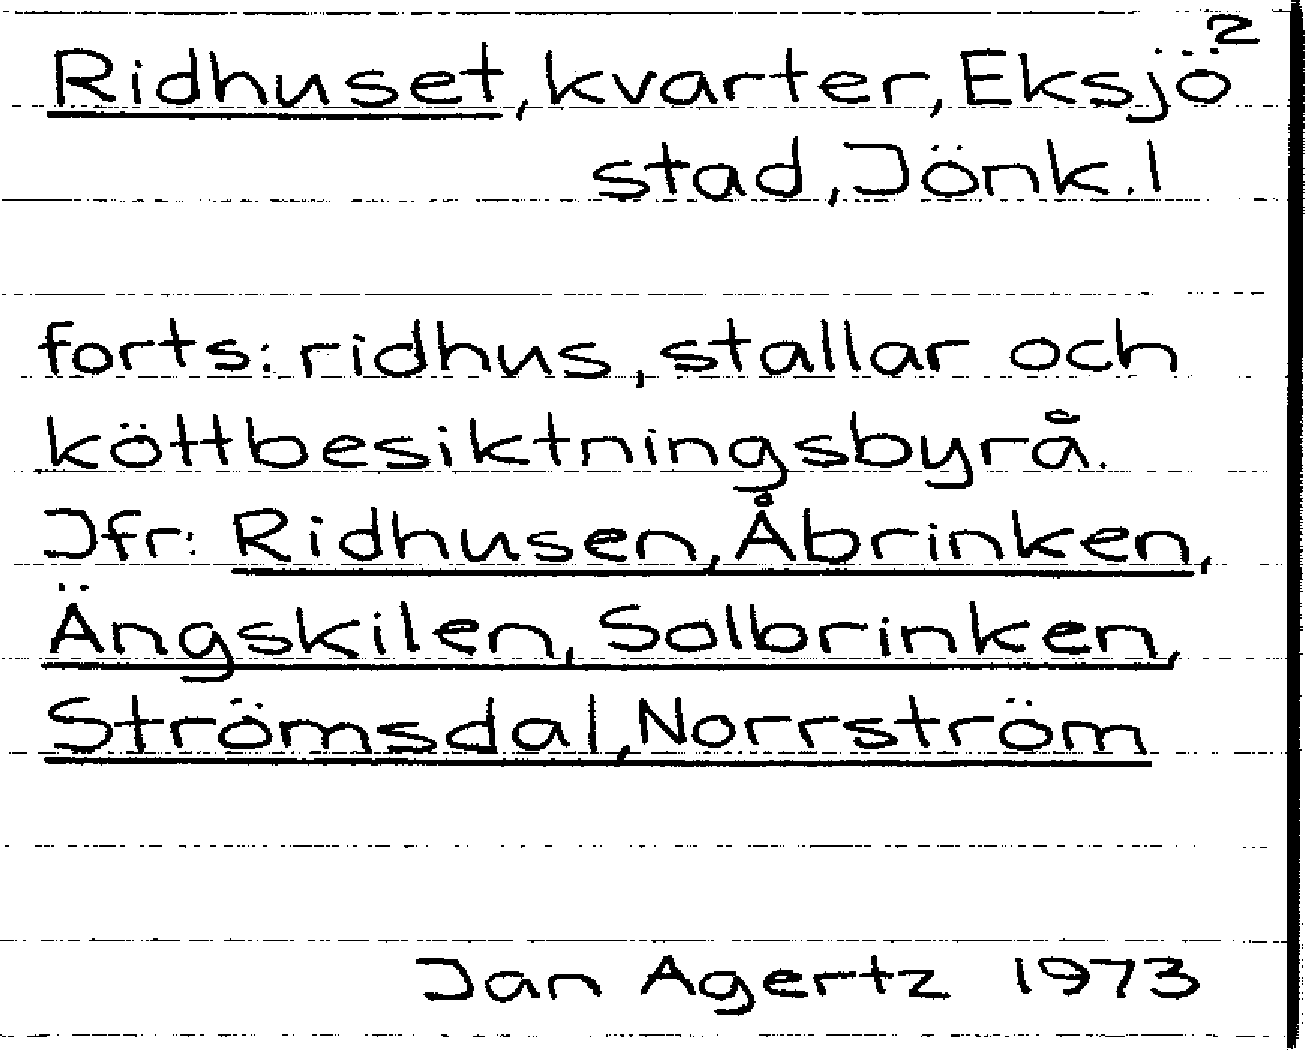 2
Ridhuset, kvarter, Eksjö
stad, Jönk. l
forts: ridhus, stallar och
köttbesiktningsbyrå.
Jfr: Ridhusen, Åbrinken,
Ängskilen, Solbrinken,
Strömsdal, Norrström
Jan Agertz 1973